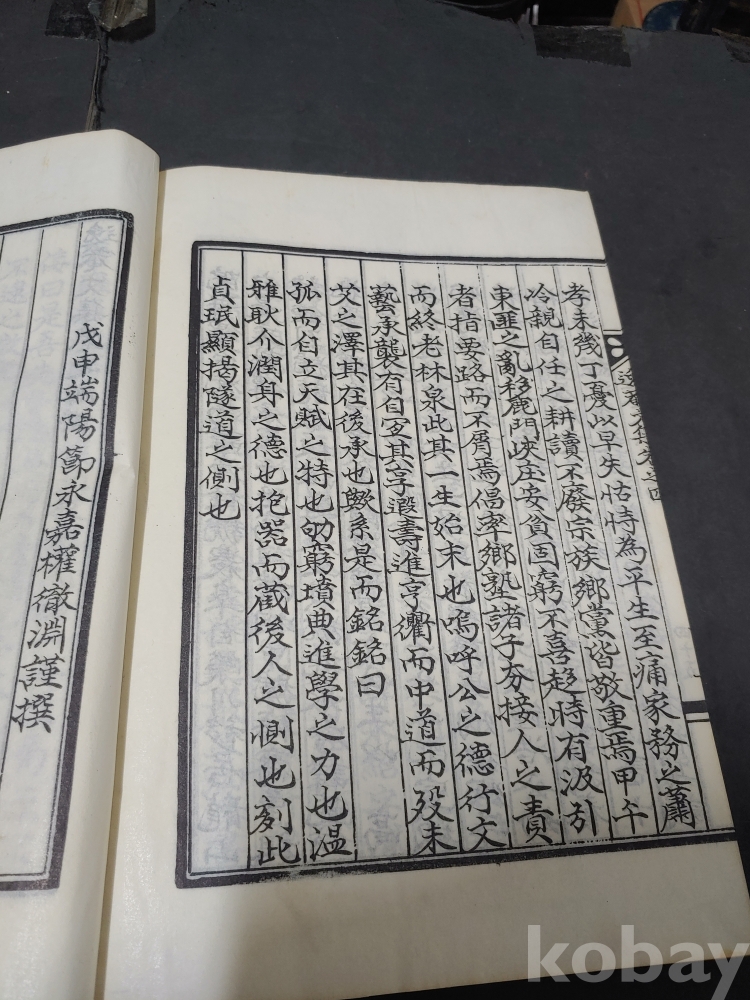 孝未幾丁憂以早失怙恃為平生至痛家務之蕭
冷親自任之耕讀不廢宗族鄉黨皆敬重焉甲午
東匪之亂移鹿門峽庄安貧固窮不喜趍時有汲引
者指要路而不屑焉倡率鄉塾諸子夯接人之責
而終老林泉此其一生始末也嗚呼公之德行文
藝承襲有自宐其享遐壽進亨衢而中道而歿未
艾之澤其在後承也歟系是而銘銘曰
孤而自立天賦之特也劬窮墳典進學之力也温
雅耿介潤身之德也抱器而藏後人之惻也刻此
貞珉顯揭隧道之側也
戊申端陽節永嘉權徹淵謹撰
kobay